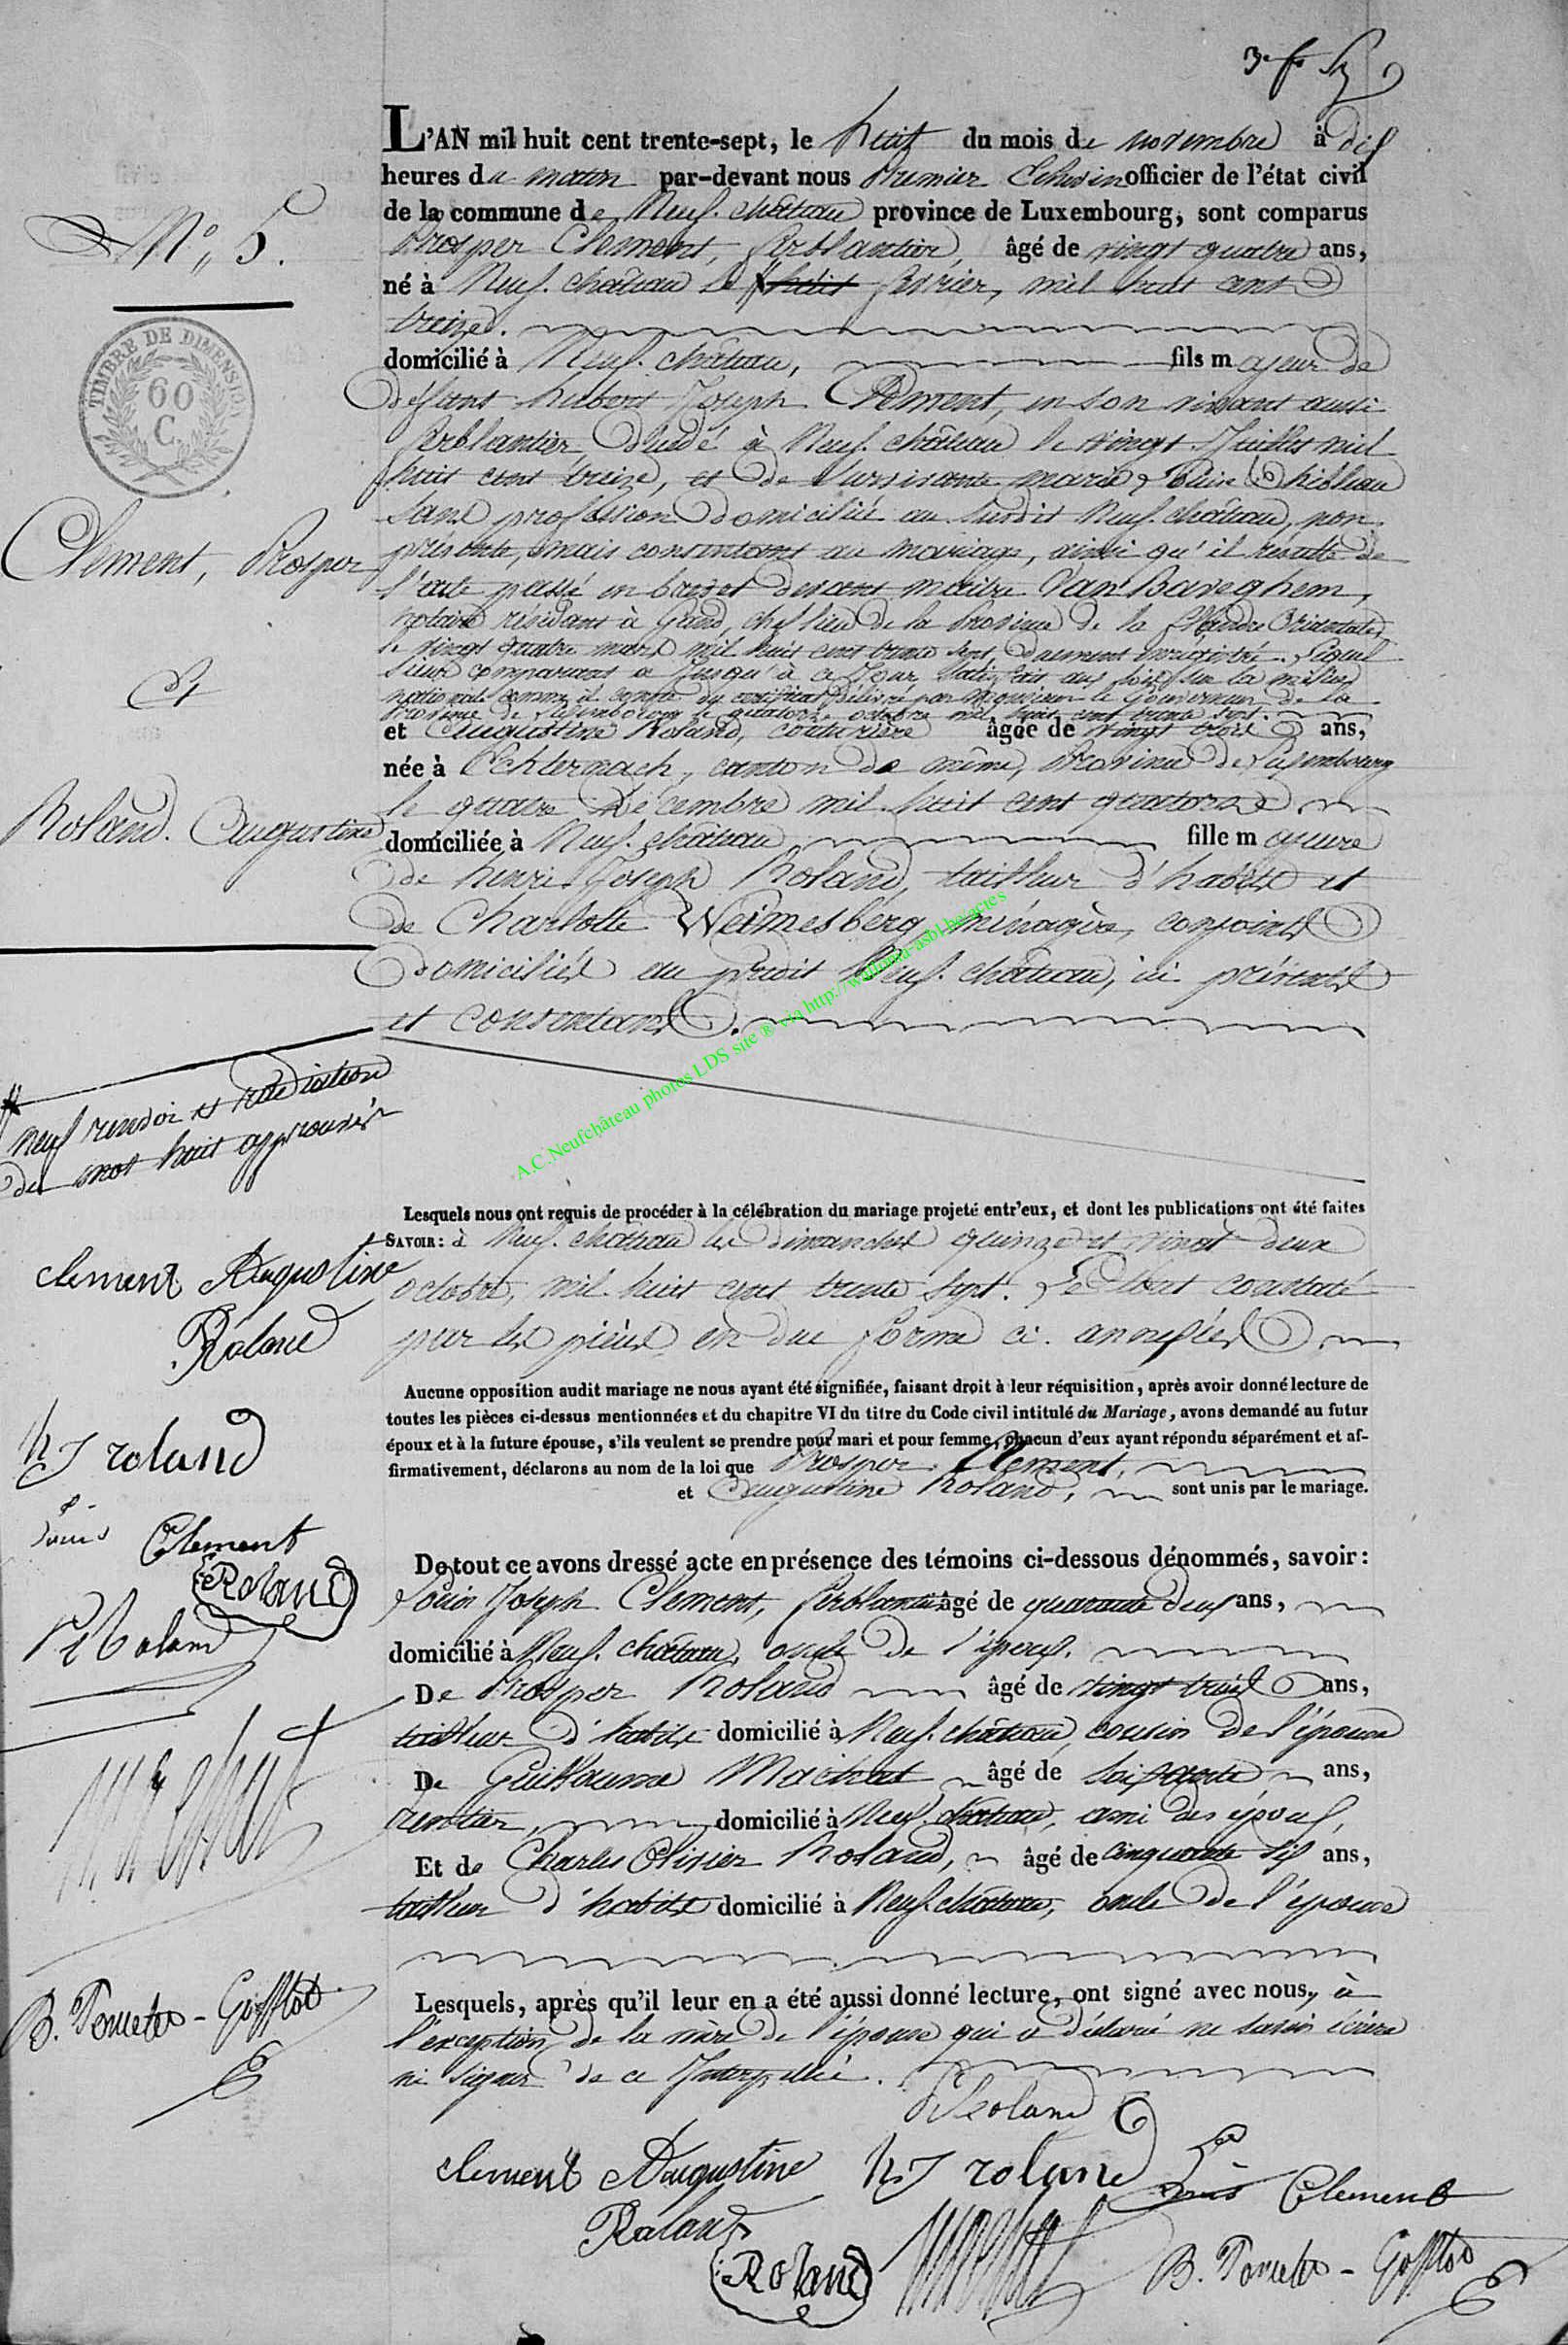 3e fo
L'AN mil huit cent trente-sept, le huit du mois de novembre à dix
heures du matin par-devant nous Premier Echevin officier de l'état civil
de la commune de Neuf-château province de Luxembourg, sont comparus
Prosper Clement, ferblantier, âgé de vingt quatre ans,
né à Neuf-château le huit février, mil huit cent
treize.
domicilié à Neuf-château, fils majeur de
défunt hubert Joseph Clement, en son vivant aussi
ferblantier, décédé à Neuf-château le vingt Juillet mil
huit cent treize, et de survivante marie Louise Thibleau
sans profession domiciliée au susdit Neuf-château, non
présente, mais consentant au mariage, ainsi qu'il résulte de
l'acte passé en brevet devant maitre Van Baveghem,
notaire résidant à Gand, chef lieu de la Province de la flandre Orientale,
le vingt quatre mars mil huit cent trente sept, dûement enregistré. Lequel
sieur comparant a jusqu'à ce jour satisfait aux lois sur la milice
nationale comme il conste du certificat délivré par Monsieur le Gouverneur de la
Province de Luxembourg le quatorze octobre mil huit cent trente sept.
et Augustine Roland, couturière âgée de vingt trois ans,
née à Echternach, canton de même, Province de Luxembourg
le quatre Décembre mil huit cent quatorze
domiciliée à Neuf-château fille majeure
de henri Joseph Roland, tailleur d'habits et
de Charlotte Weimesberg ménagère, conjoints
domiciliés au prédit Neuf-château, ici présents
et consentans.
No 5.
TIMBRE DE DIMENSION
60
C.
Clement, Prosper
Et
Roland. Augustine
neuf renvoi et radiation
du mot huit approuvés
A.C.Neufchâteau photos LDS site ® via http://wallonia-asbl.be/actes
Lesquels nous ont requis de procéder à la célébration du mariage projeté entr'eux, et dont les publications ont été faites
SAVOIR: à Neuf-château les dimanches quinze et vingt deux
octobre, mil huit cent trente sept. Le tout constaté
par les pièces en due forme ci-annexées
Aucune opposition audit mariage ne nous ayant été signifiée, faisant droit à leur réquisition, après avoir donné lecture de
toutes les pièces ci-dessus mentionnées et du chapitre VI du titre du Code civil intitulé du Mariage, avons demandé au futur
époux et à la future épouse, s'ils veulent se prendre pour mari et pour femme, chacun d'eux ayant répondu séparément et af-
firmativement, déclarons au nom de la loi que Prosper Clement,
et Augustine Roland, sont unis par le mariage.
De tout ce avons dressé acte en présence des témoins ci-dessous dénommés, savoir:
Louis Joseph Clement, ferblantier âgé de quarante deux ans,
domicilié à Neuf-château, oncle de l'époux.
De Prosper Roland âgé de vingt trois ans,
tailleur d'habits domicilié à Neuf-château, cousin de l'épouse
De Guillaume Machat âgé de soixante ans,
rentier, domicilié à Neuf-château, ami des époux,
Et de Charles Olivier Roland, âgé de cinquante six ans,
tailleur d'habits domicilié à Neuf-château, oncle de l'épouse
Lesquels, après qu'il leur en a été aussi donné lecture, ont signé avec nous, à
l'exception de la mère de l'épouse qui a déclaré ne savoir écrire
ni signer de ce Interpellée.
clement Augustine
Roland
h J roland
Louis Clement
Roland
Roland
B. Poncelet - Gofflot
Roland
clement Augustine h J roland
Louis Clement
Roland
Roland
B. Poncelet - Gofflot